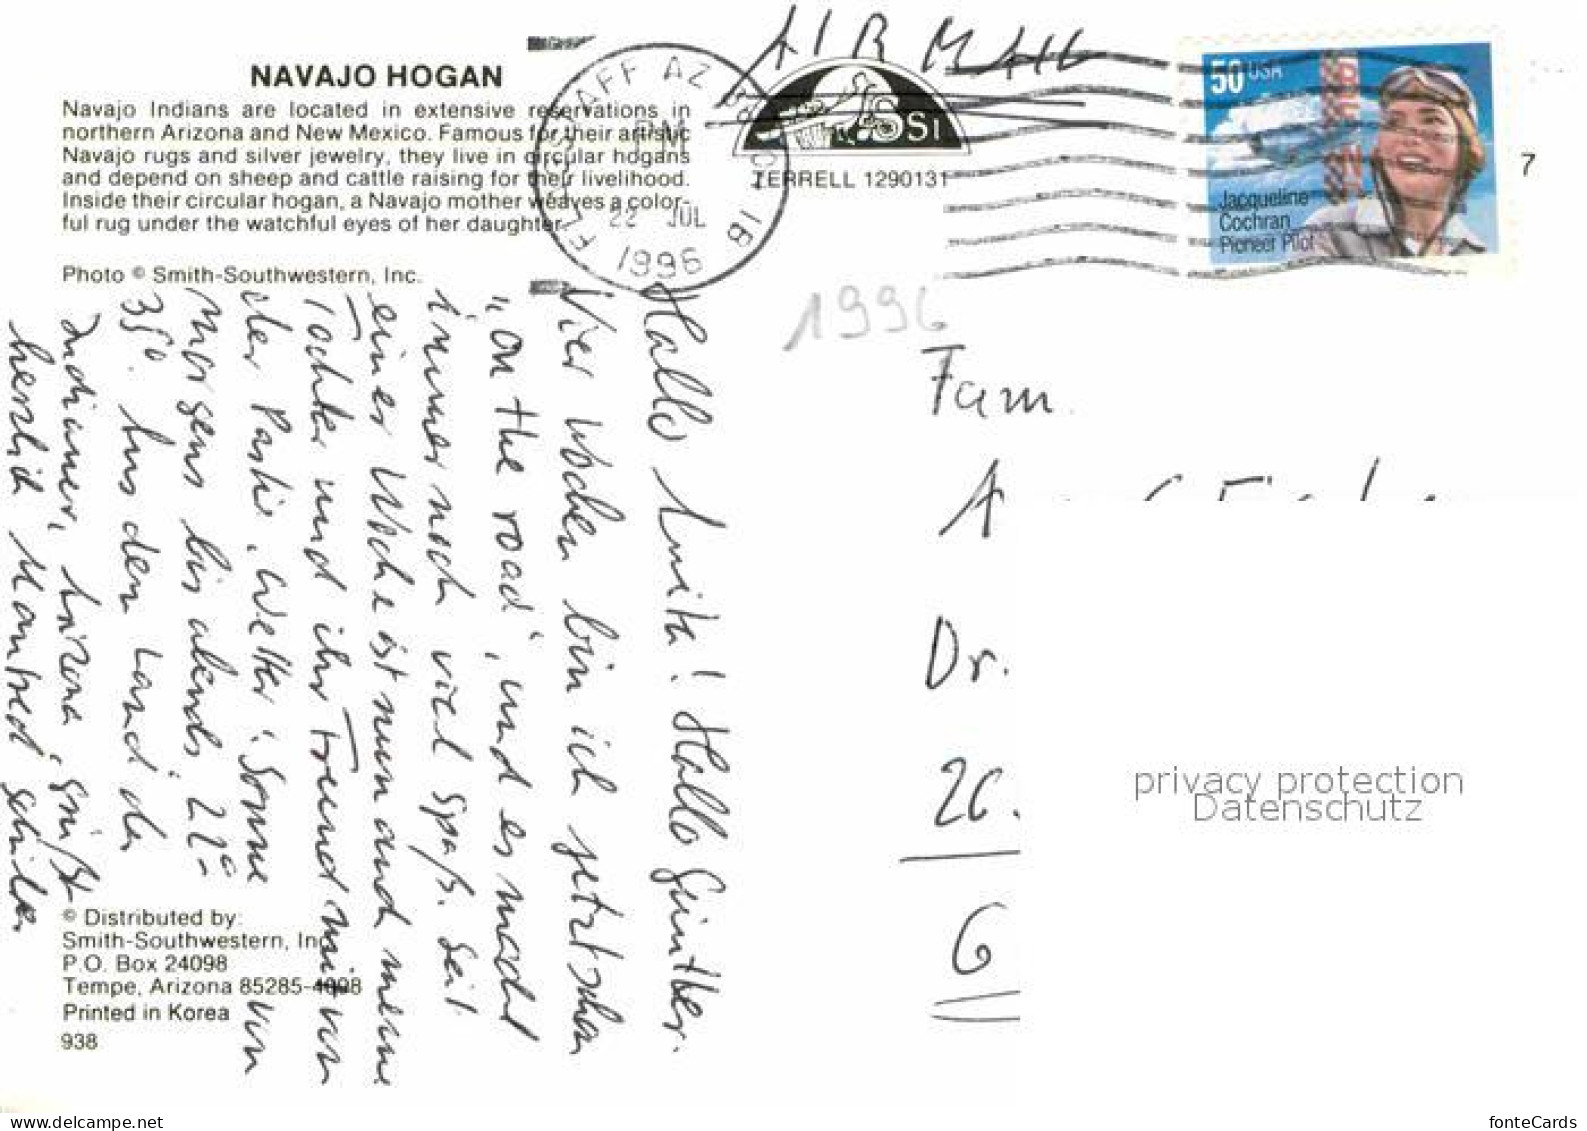 AIR MAIL
NAVAJO HOGAN
Navajo Indians are located in extensive reservations in
northern Arizona and New Mexico. Famous for their artistic
Navajo rugs and silver jewelry, they live in circular hogans
and depend on sheep and cattle raising for their livelihood.
Inside their circular hogan, a Navajo mother weaves a color-
ful rug under the watchful eyes of her daughter.
Photo © Smith-Southwestern, Inc.
FLAGSTAFF AZ
PM
22 JUL
1996
SSI
TERRELL 1290131
50 USA
Jacqueline
Cochran
Pioneer Pilot
7
1996
Hallo Anita! Hallo Günther.
Vier Wochen bin ich jetzt schon
"on the road", und es macht
immer noch viel Spaß. Seit
einer Woche ist nun auch meine
Tochter und ihr Freund mit von
der Partie. Wetter: Sonne von
morgens bis abends, 22°-
35°. Aus dem Land der
Indianer, Arizona, grüßt
herzlich Manfred
Fam.
A
Dr.
26.
6
© Distributed by:
Smith-Southwestern, Inc.
P.O. Box 24098
Tempe, Arizona 85285-4098
Printed in Korea
938
privacy protection
Datenschutz
www.delcampe.net
fonteCards